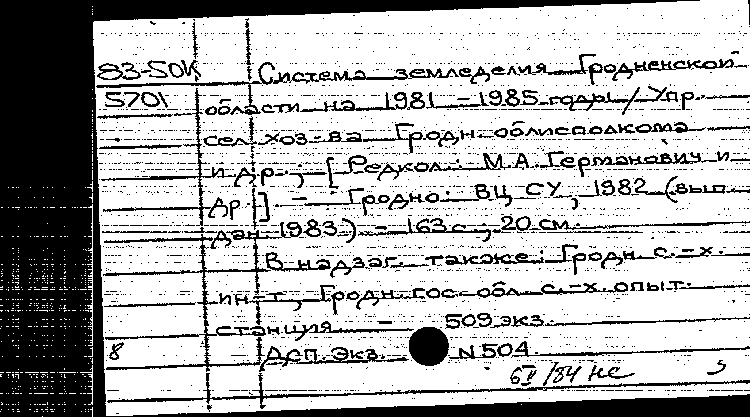 83-50К Система земледелия Гродненской
5701 области на 1981 – 1985 годы / Упр.
сел. хоз-ва Гродн. облисполкома
и др.; [Редкол.: М.А. Германович и
др.] – Гродно: ВЦ СУ, 1982 (вып.
дан. 1983). – 163 с.; 20 см.
В надзаг. также: Гродн. с.-х.
ин-т, Гродн. гос. обл. с.-х. опыт.
станция – 509 экз.
8 Дсп. Экз. N 504.
6 II/84 НС